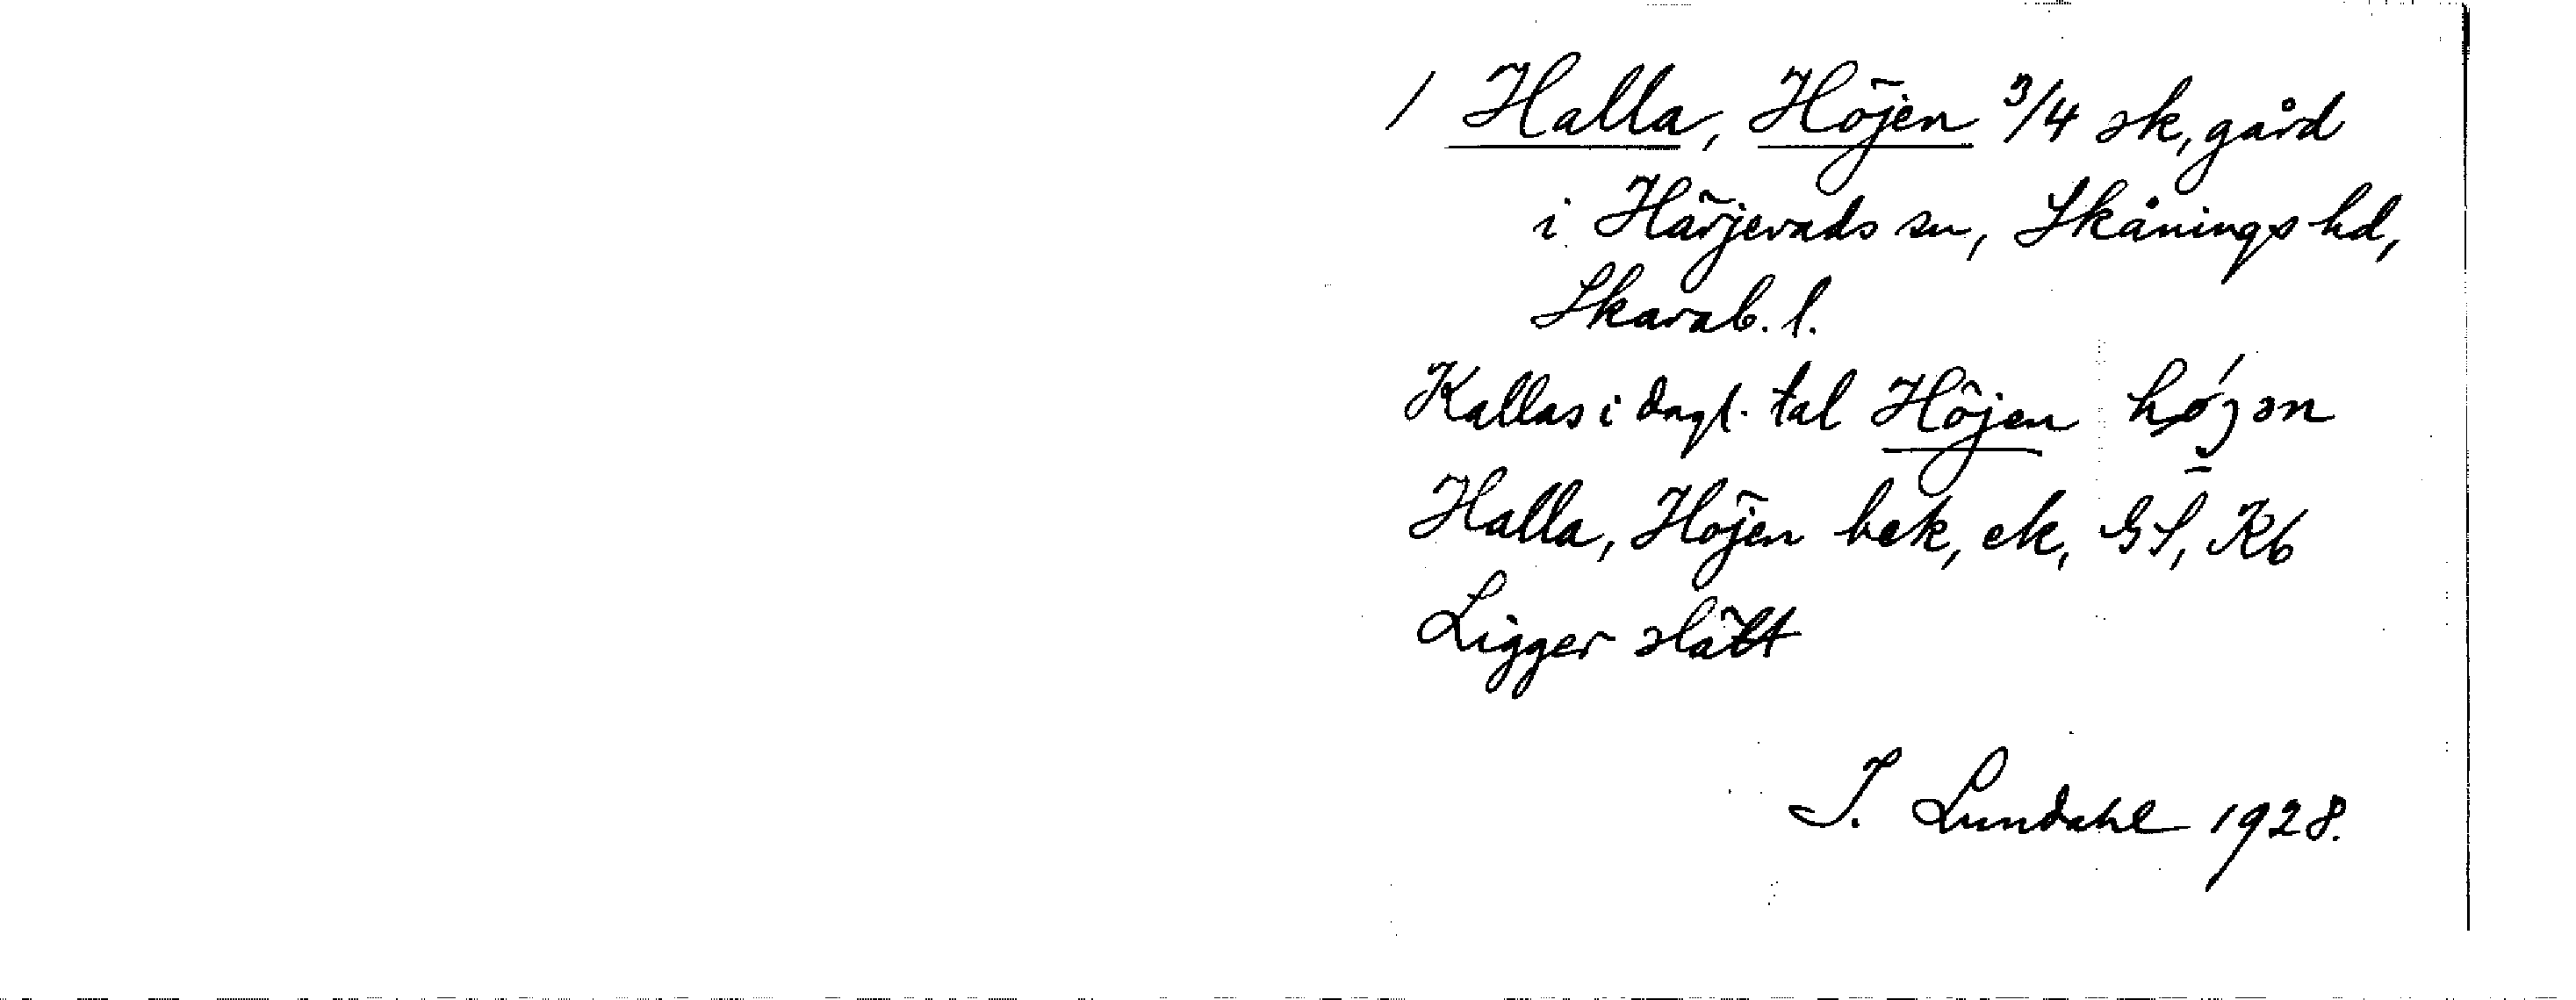 / Halla, Höjen 3/4 sk, gård
i Härjevads sn, Skånings hd,
Skarab. l.
Kallas i dagl. tal Höjen hǿjən
Halla, Höjen bek, ek, GS, Kb
Ligger slätt
I. Lundahl 1928.